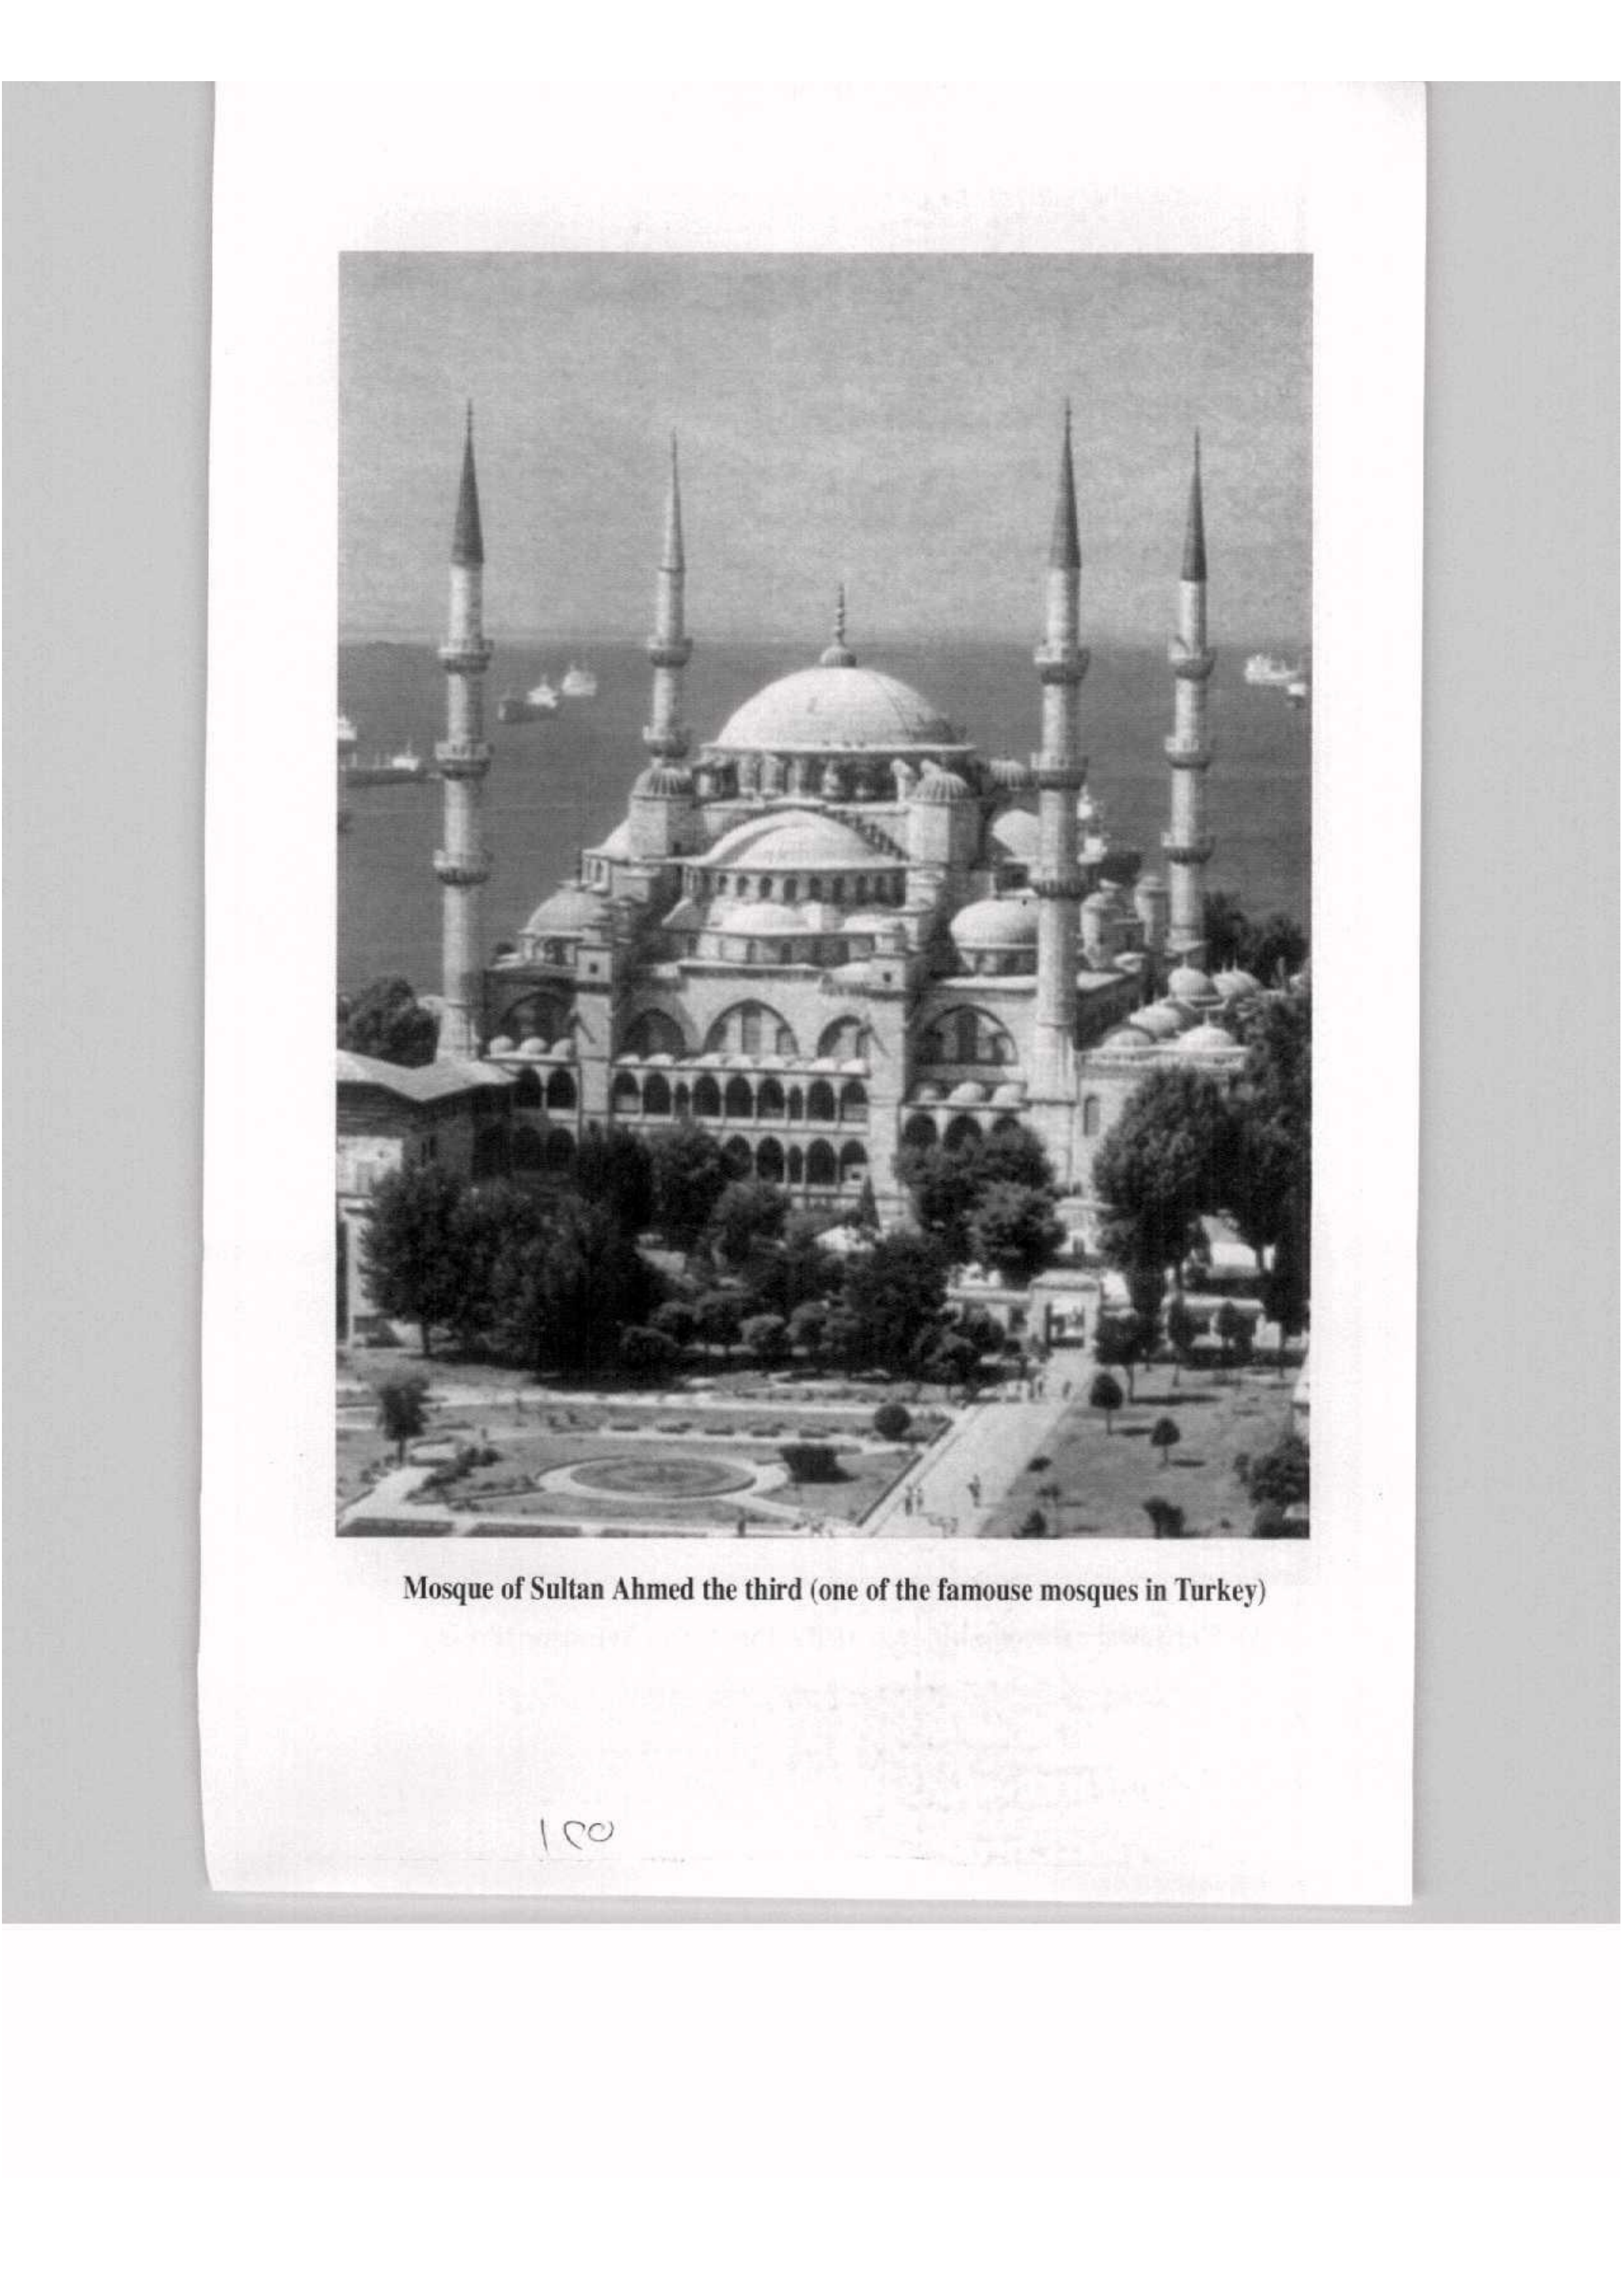 Mosque of Sultan Ahmed the third (one of the famouse mosques in Turkey)